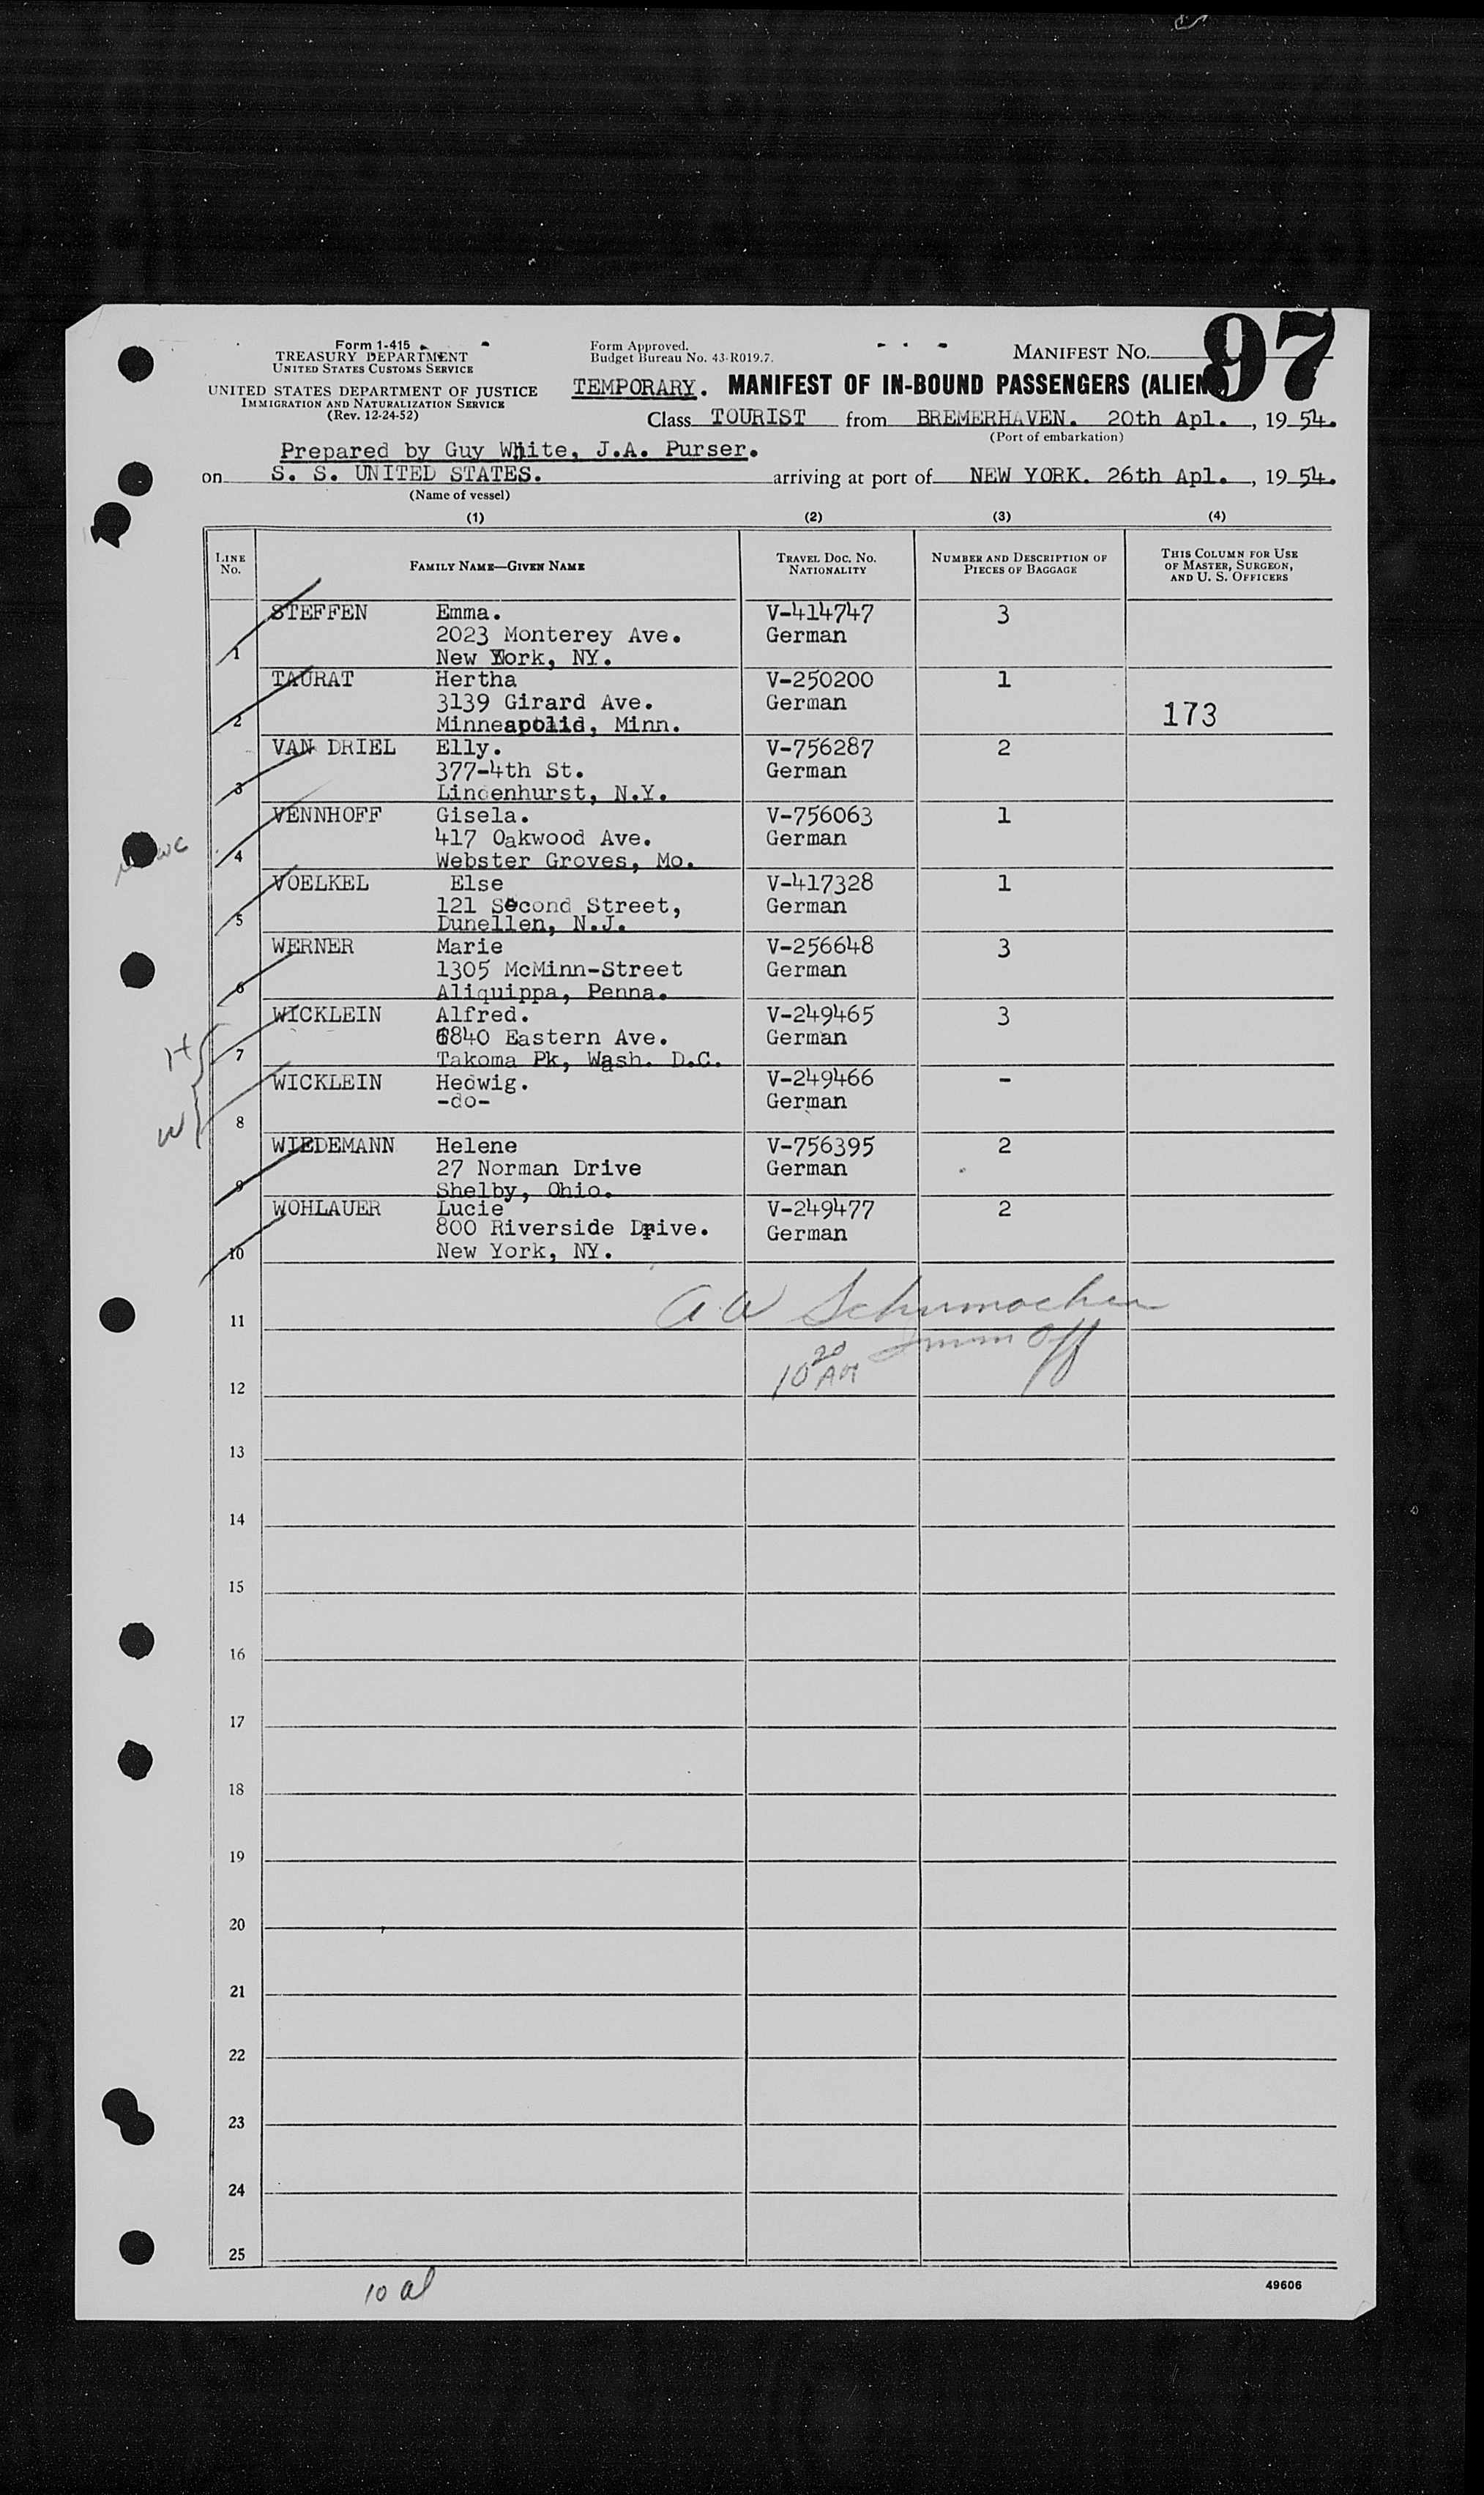 97
Form 1-415
TREASURY DEPARTMENT
UNITED STATES CUSTOMS SERVICE
UNITED STATES DEPARTMENT OF JUSTICE
IMMIGRATION AND NATURALIZATION SERVICE
(Rev. 12-24-52)
Form Approved.
Budget Bureau No. 43-R019.7.
MANIFEST NO.
TEMPORARY. MANIFEST OF IN-BOUND PASSENGERS (ALIEN
Class TOURIST from BREMERHAVEN. 20th Apl. , 19 54.
(Port of embarkation)
Prepared by Guy White, J.A. Purser.
on S. S. UNITED STATES. arriving at port of NEW YORK. 26th Apl. , 19 54.
(Name of vessel)
(1) (2) (3) (4)
LINE NO. FAMILY NAME—GIVEN NAME TRAVEL DOC. NO. NATIONALITY NUMBER AND DESCRIPTION OF PIECES OF BAGGAGE THIS COLUMN FOR USE OF MASTER, SURGEON, AND U. S. OFFICERS
STEFFEN Emma. V-414747 3
2023 Monterey Ave. German
1 New York, NY.
TAURAT Hertha V-250200 1
3139 Girard Ave. German
2 Minneapolis, Minn. 173
VAN DRIEL Elly. V-756287 2
377-4th St. German
3 Lindenhurst, N.Y.
VENNHOFF Gisela. V-756063 1
417 Oakwood Ave. German
4 Webster Groves, Mo.
VOELKEL Else V-417328 1
121 Second Street, German
5 Dunellen, N.J.
WERNER Marie V-256648 3
1305 McMinn-Street German
6 Aliquippa, Penna.
WICKLEIN Alfred. V-249465 3
6840 Eastern Ave. German
H 7 Takoma Pk, Wash. D.C.
WICKLEIN Hedwig. V-249466 -
-do- German
W 8
WIEDEMANN Helene V-756395 2
27 Norman Drive German
9 Shelby, Ohio.
WOHLAUER Lucie V-249477 2
800 Riverside Drive. German
10 New York, NY.
A W Schumacher
11
Imm Off
10 20 AM
12
13
14
15
16
17
18
19
20
21
22
23
24
25
10 al
49606